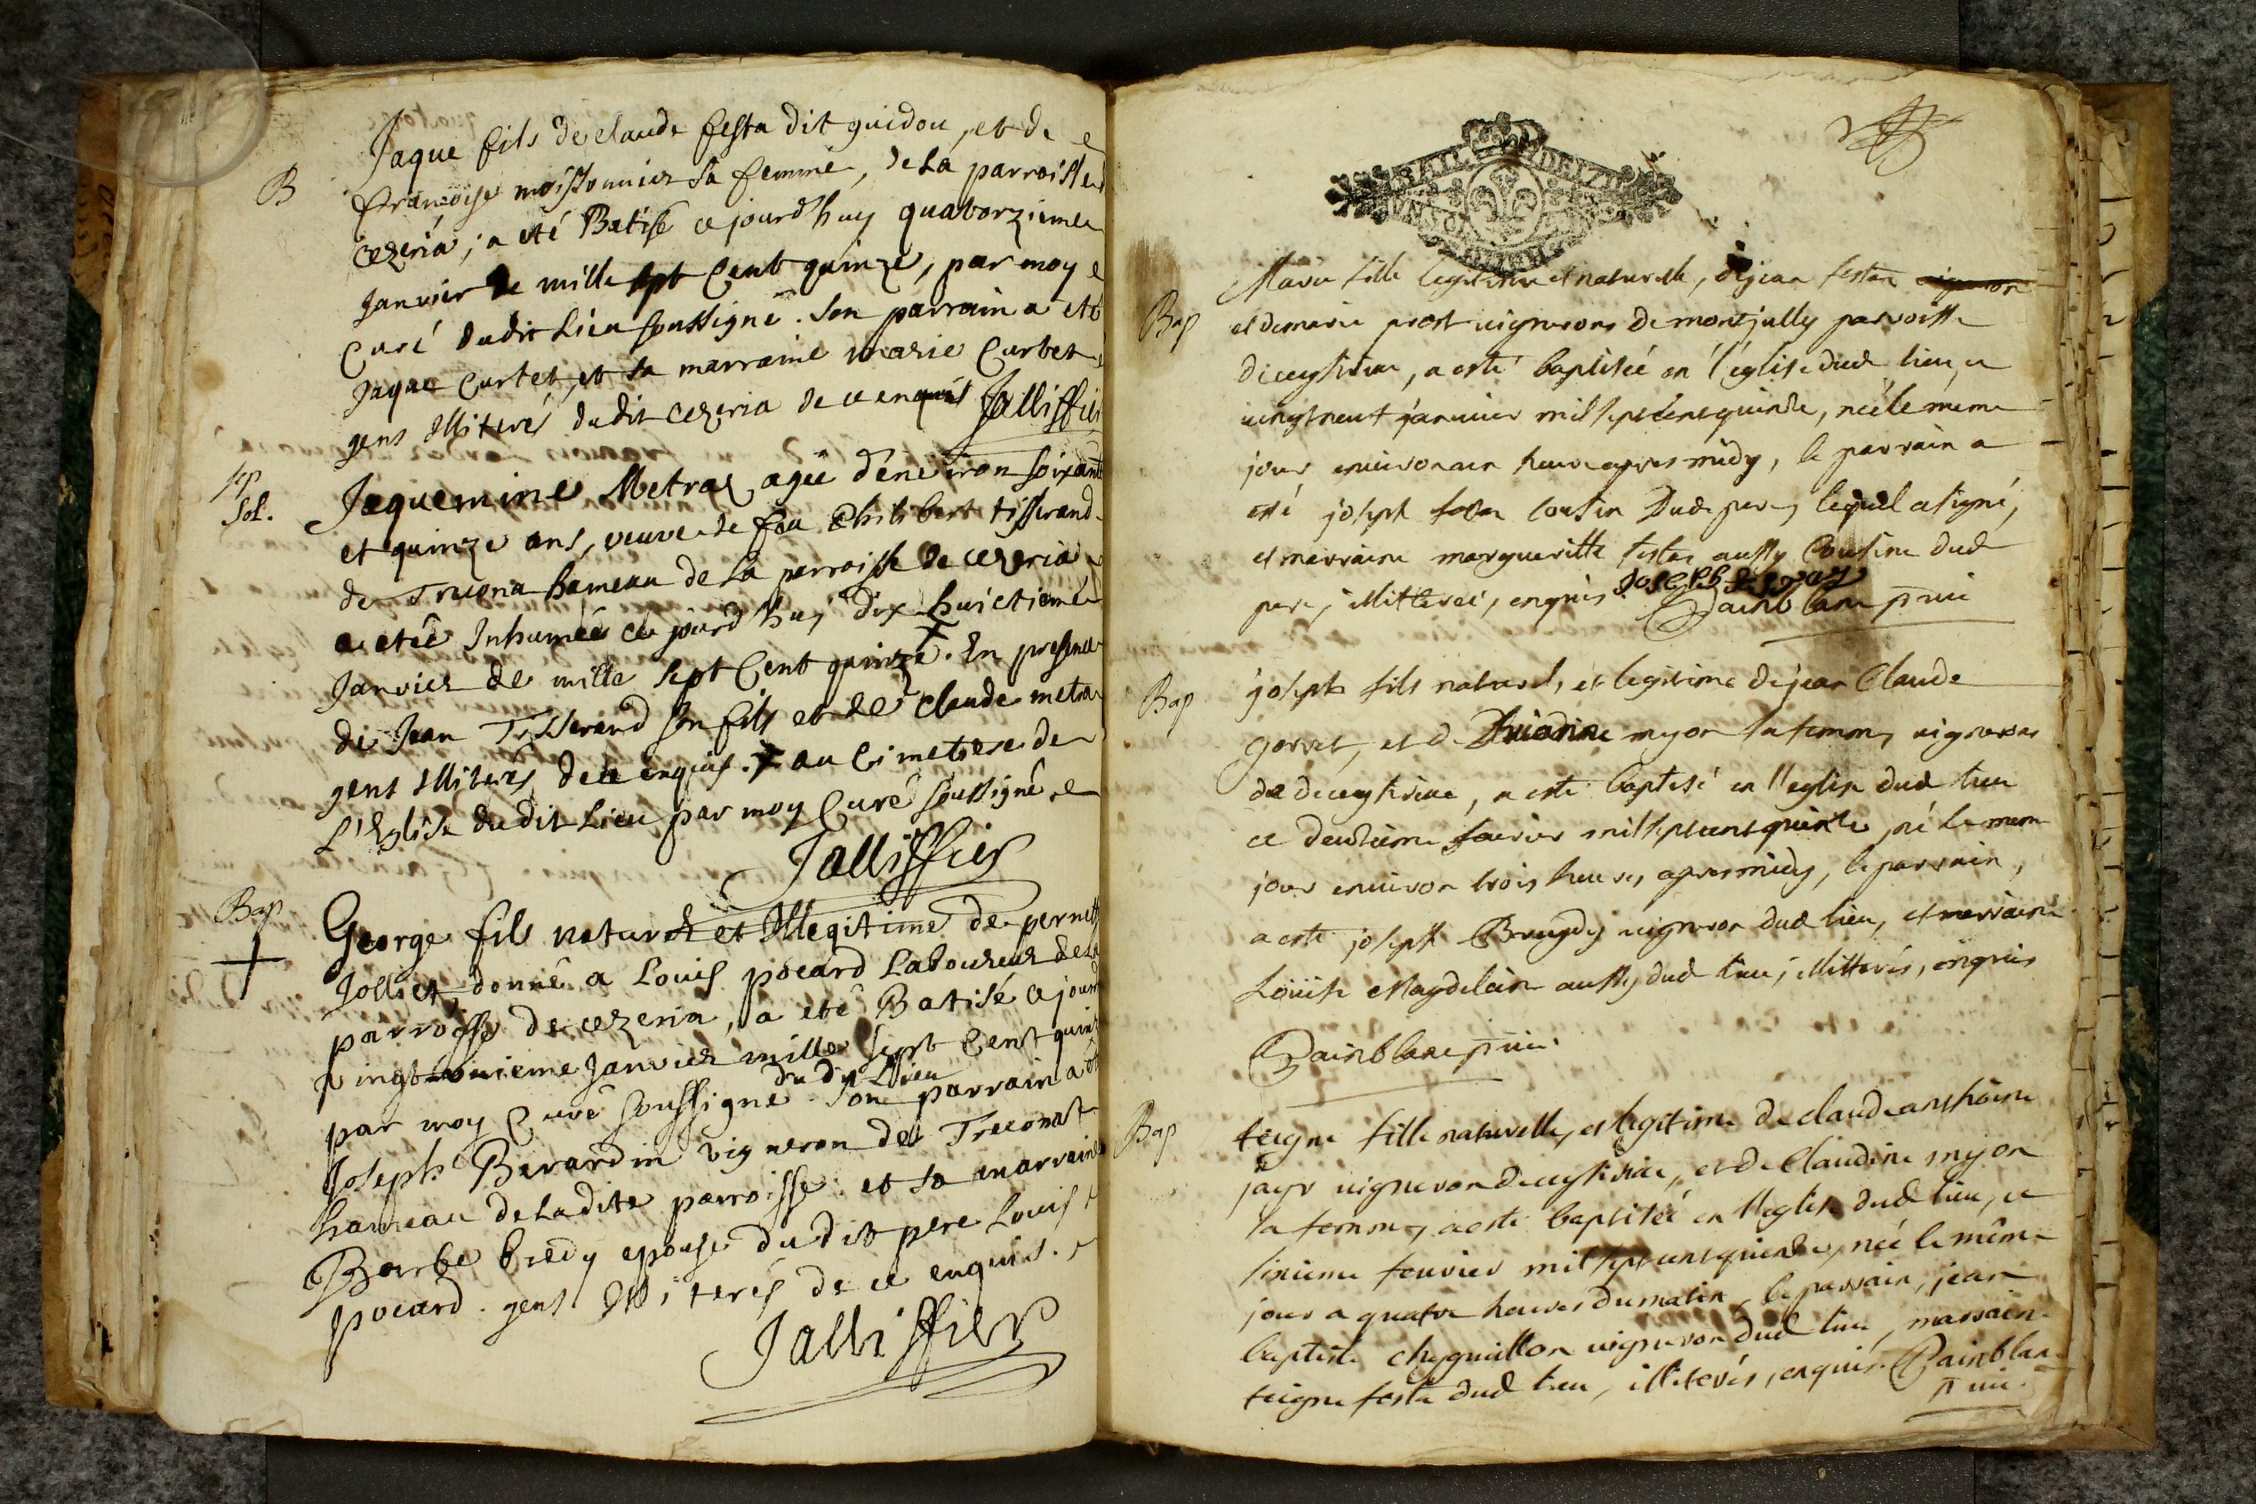 Jaque fils de claude festa dit guidou, et de
B
francoise moissonnier sa femme, de la parroisse
cezeria; a eté Batisé ce jourd'huy quatorzieme
Janvier de mille sept Cent quinze, par moy
Curé dudit Lieu soussigné. Son parrain a eté
Jaque Curtet, et sa marraine marie Curtet
gens Illiterés dudit cezeria de ce enquis Jalliffier
Sep
Sol.
Jaquemine Metras agée d'environ soixante
et quinze ans, veuve de feu Philibert tisserand
de Tresona hameau de la parroisse de cezeria
a etée Inhumée ce jourd'huy dix huictiemé
Janvier de mille sept Cent quinze. En presence
de Jean Tisserand son fils et de claude metra
gens Illiterés de ce enquis. au Cimetiere de
L'Eglise dudit Lieu par moy Curé soussigné
Jalliffier
Bap
George fils naturel et Illegitime de pernette
Jolliet, donné a Louis pocard Laboureur de la
parroisse de cezeria, a eté Batisé ce jourd
vingt Janvier mille sept Cent quinz
du dit Lieu
par moy Curé soussigné. Son parrain a eté
Joseph Berardin vigneron de Treconat
hameau de Ladite parroisse. et sa marraine
Barbe bredy epouse dudit pere Louis
pocard. gens Illiterés de ce enquis.
Jalliffier
Marie fille legitime et naturelle, de jean festa
Bap
et de marie prost vignerons de montjully parroisse
de ceyseriaa, a esté baptisée en l'église dud lieu, ce
vingtneuf janvier mil septcent quinze, née le meme
jour environ une heure apres midy, le parrain a
esté joseph cousin dud pere, lequel a signé,
et marraine margueritte festaz aussy Cousine dud
pere, illitterée, enquis. Joseph
Painblanc p
Bap
joseph fils naturel, et legitime de jean Claude
gorret, et de myon sa femme, vignerons
de ceyseria, a esté baptisé en l'eglise dud lieu
ce deuxieme fevrier mil septcent quinze né le meme
jour environ trois heures apres midy, le parrain,
a esté joseph vigneron dud lieu, et marraine
Louise Magdelain aussy dud lieu, illitterés, enquis
Painblanc p
Bap
teigne fille naturelle, et legitime de claude anthoine
jayr vigneron de ceyseria, et de Claudine myon
sa femme, a esté baptisée en l'eglise dud lieu, ce
sixieme fevrier mil septcent quinze, née le même
jour a quatre heures du matin, le parrain, jean
baptiste vigneron dud lieu, marraine
teigne festa dud lieu, illiterés, enquis. Painblanc
p